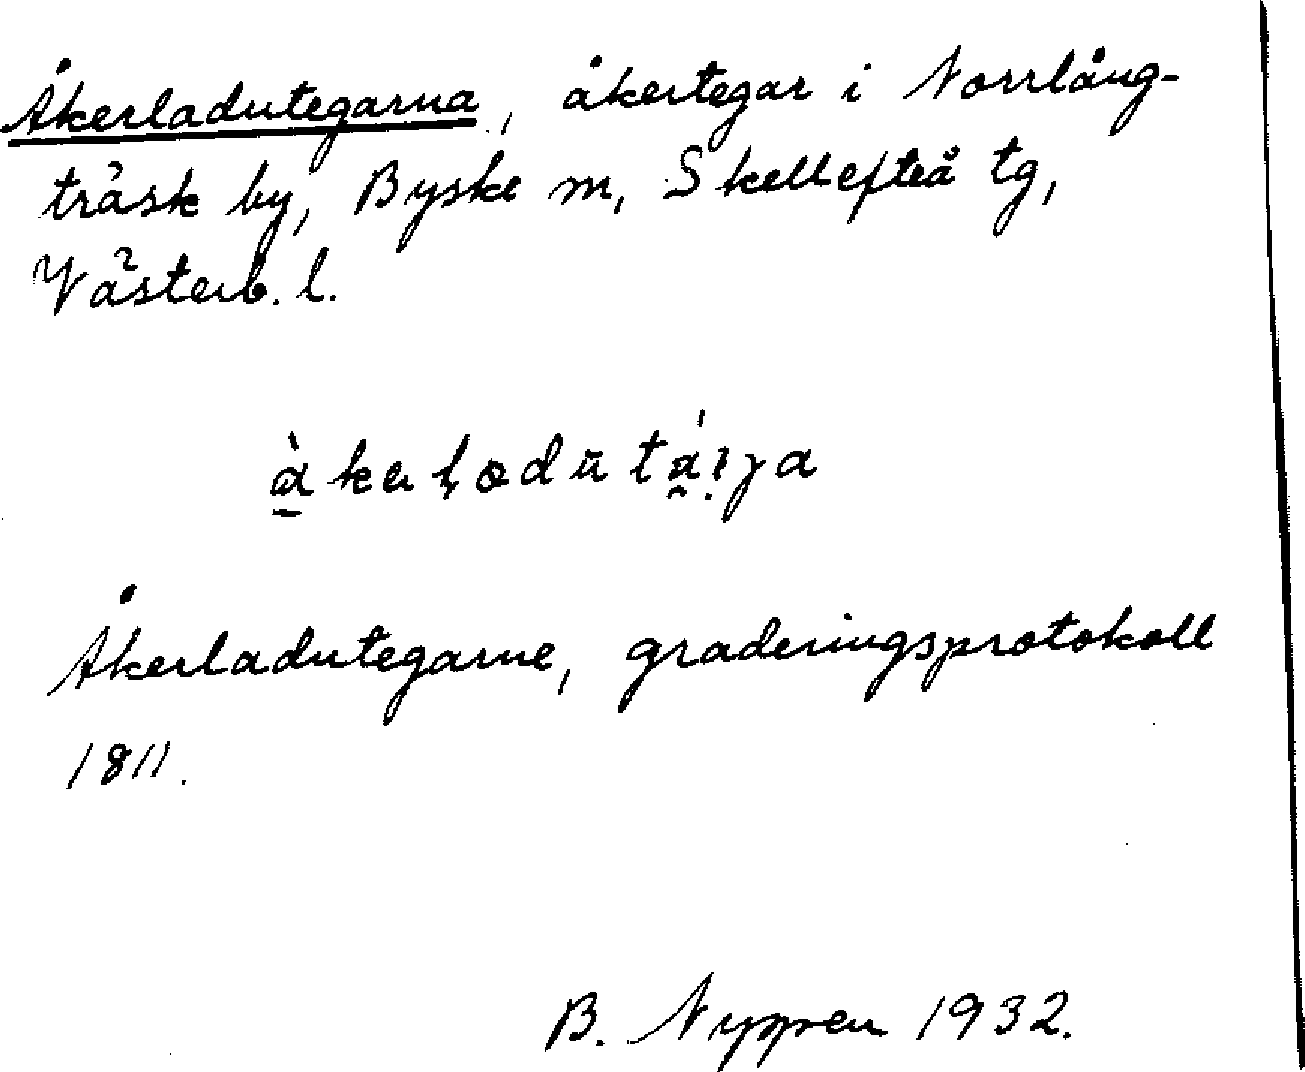 Åkerladutegarna, åkertegar i Norrlång-
träsk by, Byske m, Skellefteå tg,
Västerb. l.
Åkerladutegarne, graderingsprotokoll
1811.
B. Nyppen 1932.